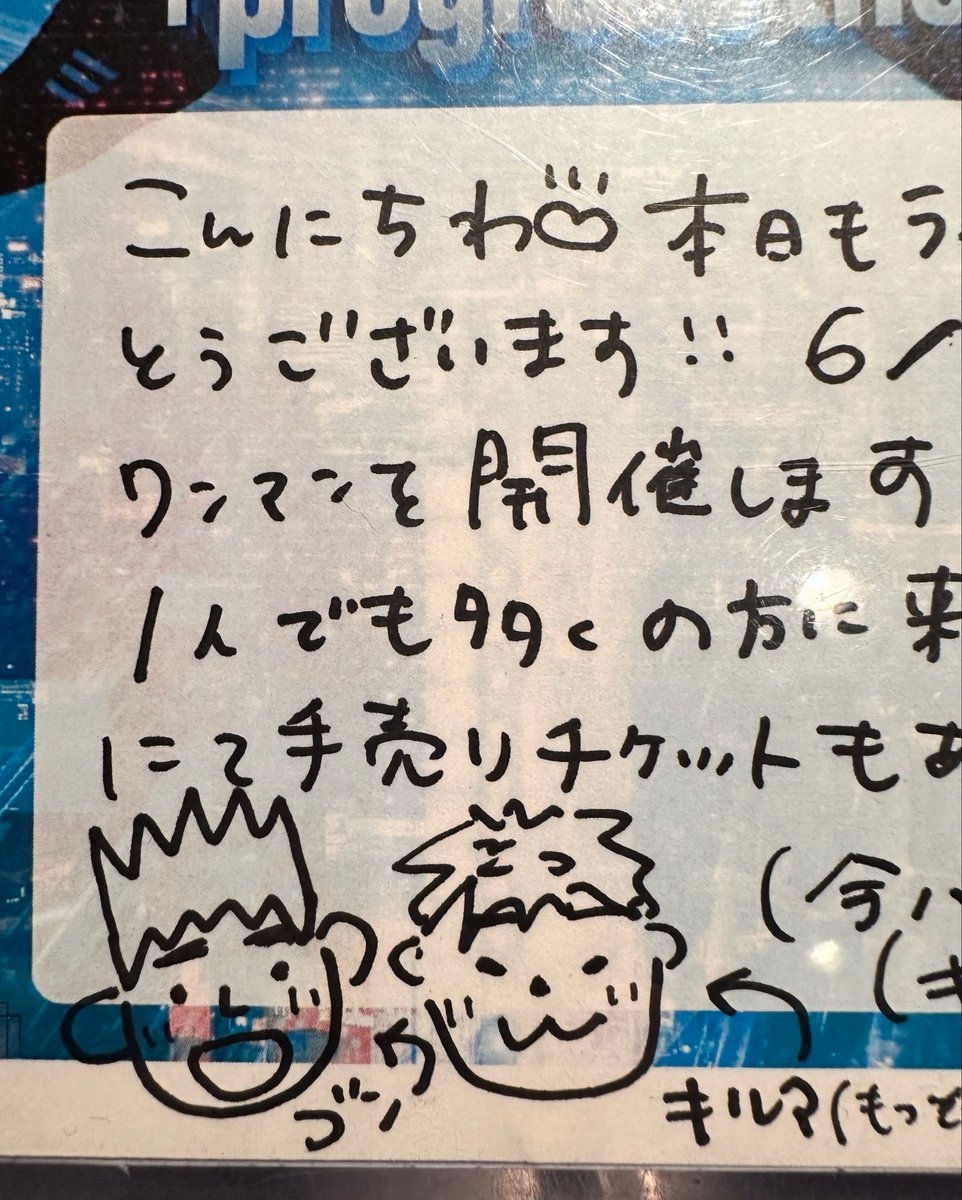 こんにちわ♡本日もう
とうございます!! 6/
ワンマンを開催します
1人でも多くの方に来
にて手売りチケットもあ
(今ハ
(キ
ゴン
キルア(もっと